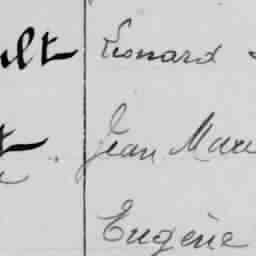 ult Léonard
t Jean Marie
Eugène